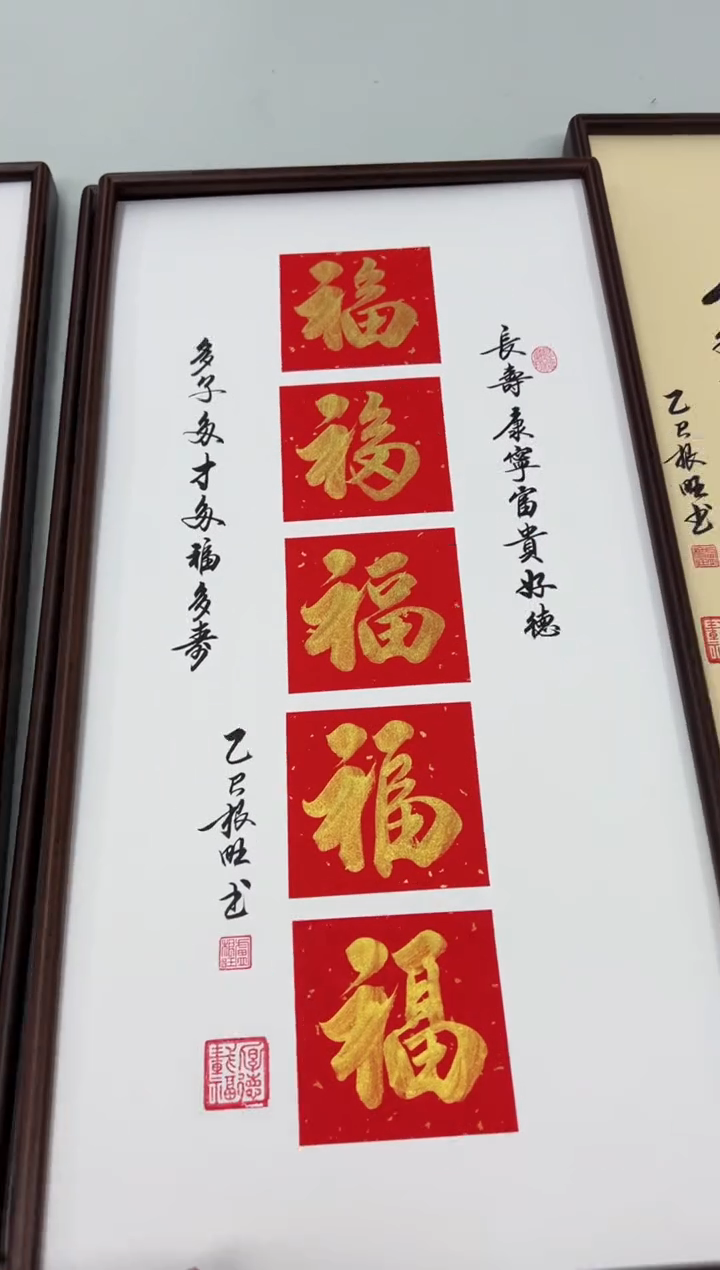 長壽康寧富貴好德
福
福
福
福
福
多子多才多福多壽
乙巳根旺书
厚德載福
乙巳根旺书